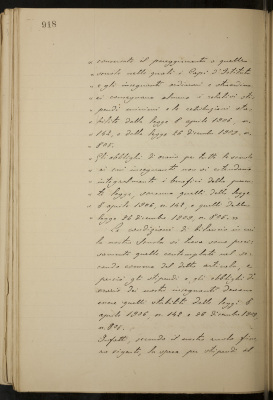 918
" conseguito il pareggiamento a quelle
" scuole nelle quali i Capi d'Istituto
" e gli insegnanti ordinari e straordina
" ri conseguano almeno i relativi sti
" pendi minimi e le retribuzioni sta
" bilite dalla legge 8 aprile 1906, n.
" 142, e dalla legge 26 dicembre 1909, n.
" 805.
" Gli obblighi di orario per tutte le scuole
" ai cui insegnanti non si estendono
" integralmente i benefici della presen
" te legge, saranno quelli della legge
" 8 aprile 1906, n. 142, e quelli della
" legge 26 dicembre 1909, n. 805. "
Le condizioni di bilancio in cui
la nostra Scuola si trova sono preci
samente quelle contemplate nel se
condo comma del detto articolo, e
perciò gli stipendi e gli obblighi di
orario dei nostri insegnanti devono
essere quelli stabiliti dalle leggi 8
aprile 1906, n. 142 e 26 dicembre 1909
n. 805.
Infatti, secondo il nostro ruolo fino
ra vigente, la spesa per stipendi al